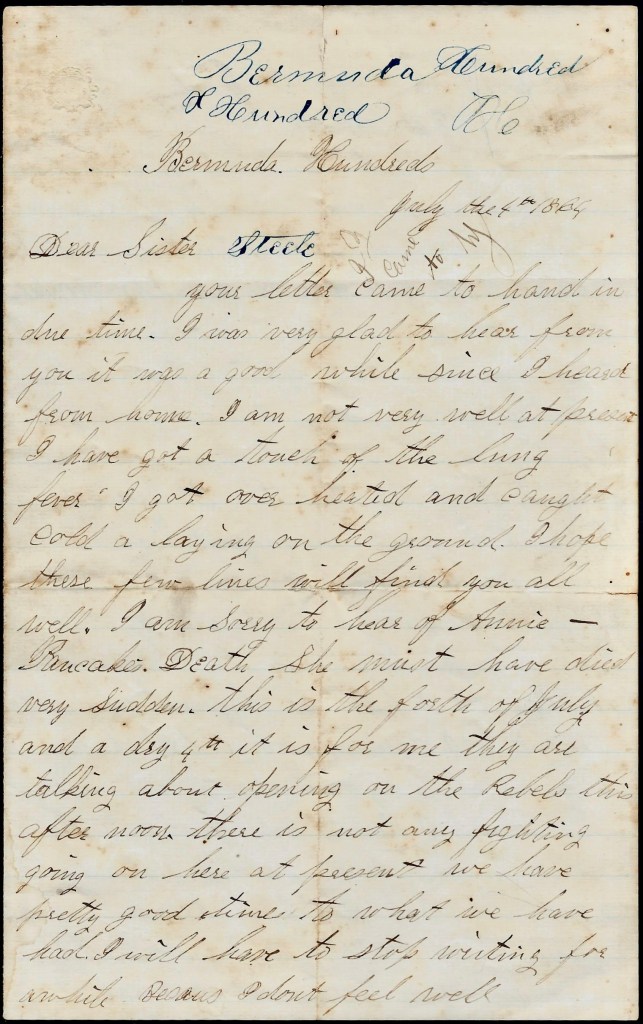 Bermuda Hundred
Hundred
Bermuda. Hundreds
July the 4th 1864
Dear Sister Steele
came to
your letter came to hand in
due time. I was very glad to hear from
you it was a good while since I heard
from home. I am not very well at present
I have got a touch of the lung
fever" I got over heated and caught
cold a laying on the ground. I hope
these few lines will find you all
well. I am sorry to hear of Annie —
Pancake. Death She must have died
very sudden. this is the forth of July
and a dry 4th it is for me they are
talking about opening on the Rebels this
after noon. there is not any fighting
going on here at present we have
pretty good time to what we have
had. I will have to stop writing for
awhile Becaus I dont feel well